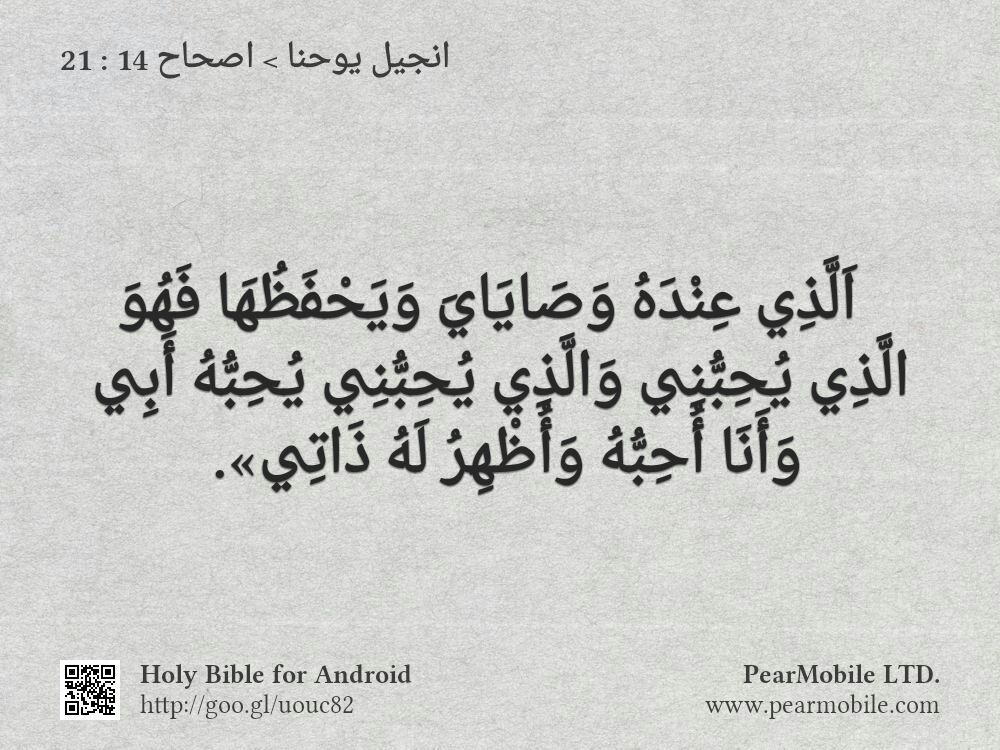 انجيل يوحنا > اصحاح 14 : 21
اَلَّذِي عِنْدَهُ وَصَايَايَ وَيَحْفَظُهَا فَهُوَ
الَّذِي يُحِبُّنِي وَالَّذِي يُحِبُّنِي يُحِبُّهُ أَبِي
وَأَنَا أُحِبُّهُ وَأُظْهِرُ لَهُ ذَاتِي».
Holy Bible for Android
http://goo.gl/uouc82
PearMobile LTD.
www.pearmobile.com